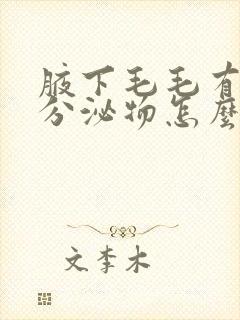 腋下毛毛有
分泌物怎麼
文李木